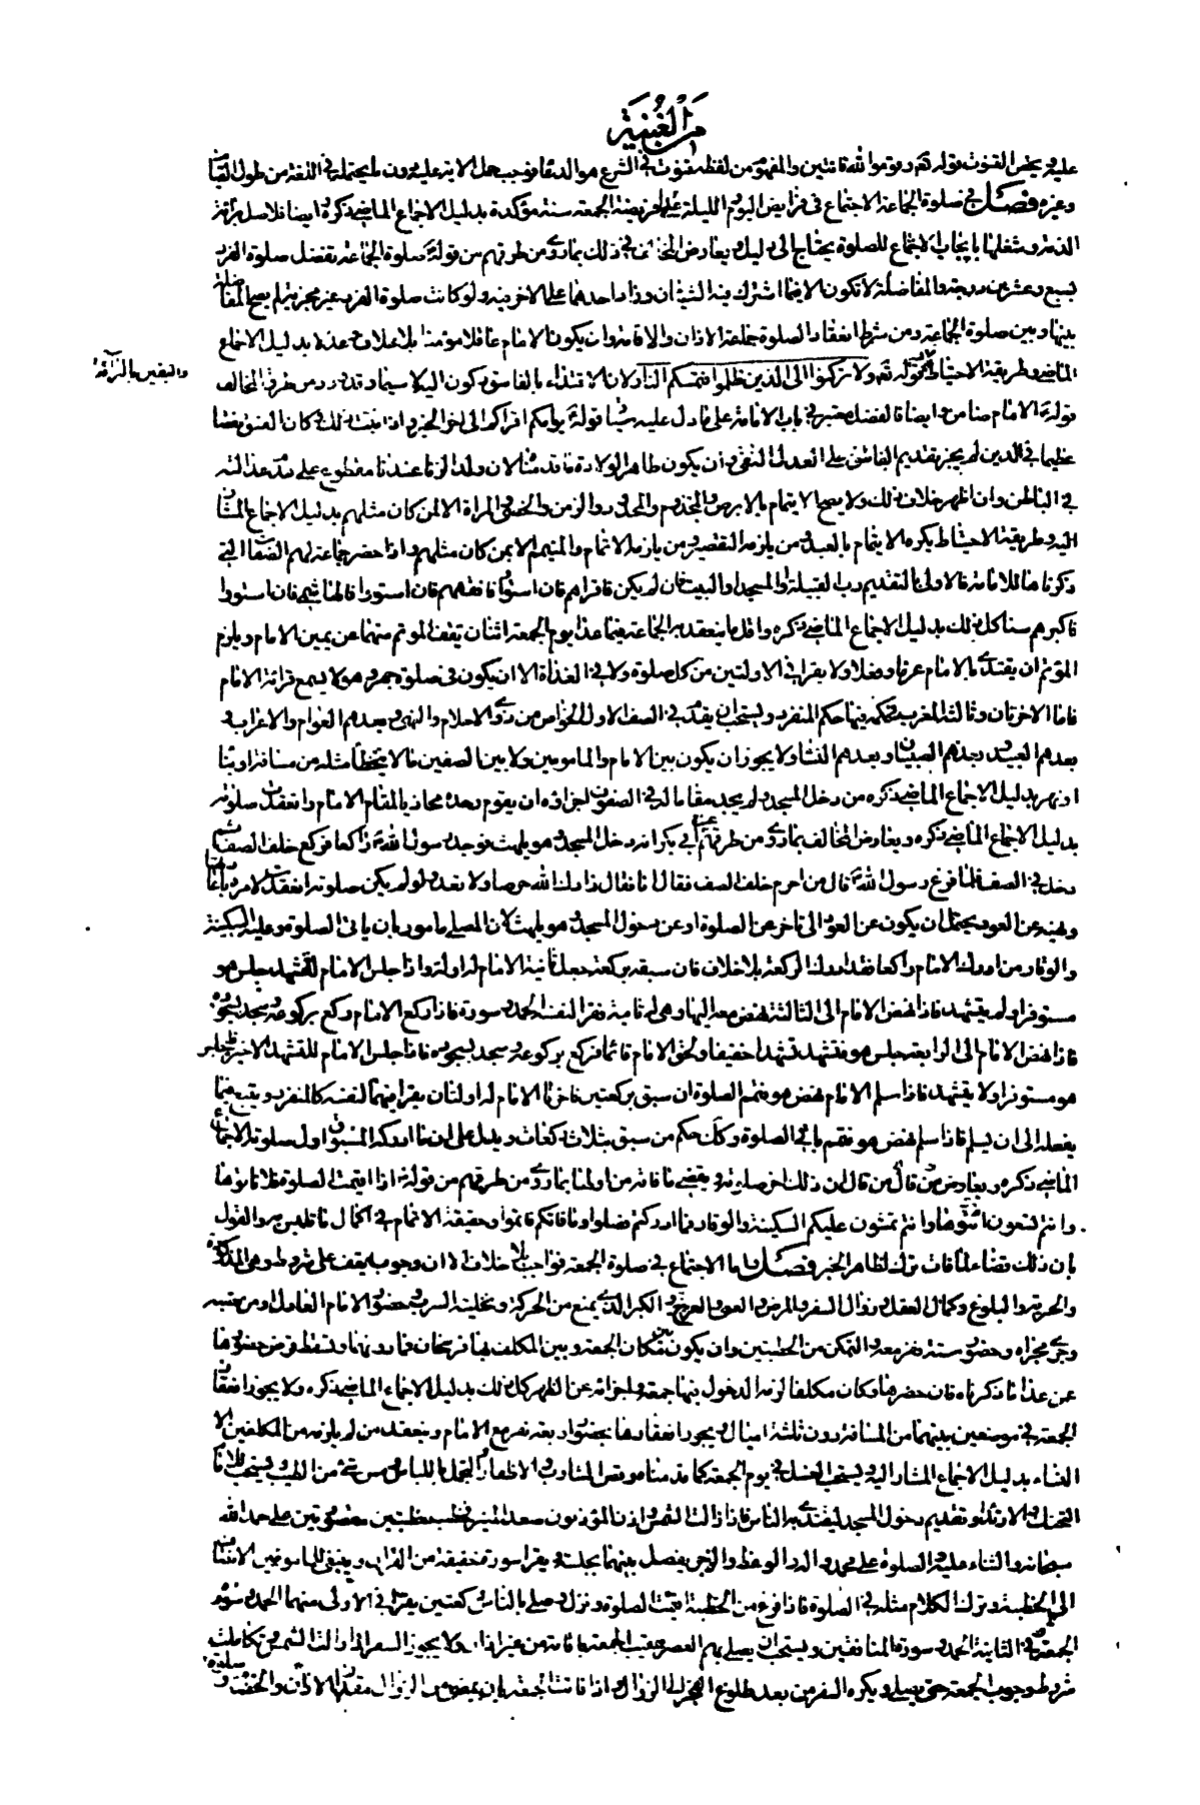 من الغنية
عليه ويخص القنوت قوله تعالى وقوموا لله قانتين والمفهوم من لفظ قنوت في الشرع هو الدعاء فوجب حمل الاية عليه دون ما يحتمله في اللغة من طول القيام
وغيره فصل في صلوة الجماعة الاجتماع في فرايض اليوم والليلة عدا فريضة الجمعة سنة مؤكدة بدليل الاجماع الماضي ذكره وايضا فالاصل براءة
الذمة وشغلها بايجاب الاجتماع للصلوة يحتاج الى دليل ويعارض المخالف في ذلك بما روى من طرقهم من قوله صلوة الجماعة تفضل صلوة الفرد
بسبع وعشرين درجة والمفاضلة لا تكون الا فيما اشترك فيه الشيئان وزاد احدهما على الاخر فيه ولو كانت صلوة الفرد غير مجزية لم يصح المفاضلة
بينها وبين صلوة الجماعة ومن شرط انعقاد الصلوة جماعة الاذان والاقامة وان يكون الامام عاقلا مؤمنا بلا خلاف عدلا بدليل الاجماع
الماضي وطريقة الاحتياط وقوله تعالى ولا تركنوا الى الذين ظلموا فتمسكم النار ولان الاقتداء بالفاسق ركون اليه لا سيما وقد ورد من طرق المخالف
واليقين بالبراءة
قوله الامام ضامن وايضا فالفضل معتبر في باب الامامة على ما دل عليه قوله يؤمكم اقراكم الى اخر الخبر واذا ثبت ذلك وكان الفسق نقصا
عظيما في الدين لم يجز تقديم الفاسق على العدل التقي وان يكون طاهر الولادة فان ولد الزنا عندنا مقطوع على عدم عدالته
في الباطن وان اظهر خلاف ذلك ولا يصح الايتمام بالابرص والمجذوم والمحدود والزمن والخصي والمراة الا لمن كان مثلهم بدليل الاجماع المشار
اليه وطريقة الاحتياط ويكره الايتمام بالعبد ومن يلزمه التقصير ومن يلزمه الاتمام والمتيمم الا لمن كان مثلهم واذا حضر جماعة لهم الصفات التي
ذكرناها للامامة فالاولى بالتقديم رب القبيلة او المسجد او البيت فان لم يكن فاقراهم فان استووا فافقههم فان استووا فالهاشمي فان استووا
فاكبرهم سنا كل ذلك بدليل الاجماع الماضي ذكره واقل ما ينعقد به الجماعة فيما عدا يوم الجمعة اثنان يقف المؤتم منهما عن يمين الامام ويلزم
المؤتم ان يقتدي بالامام عزما وفعلا ولا يقرا في الاولتين من كل صلوة ولا في الغداة الا ان يكون في صلوة جهر وهو لا يسمع قراءة الامام
فاما الاخرتان وثالثة المغرب فحكمه فيها حكم المنفرد ويستحب ان يقف في الصف الاول الخواص من ذوي الاحلام والنهى وبعدهم العوام والاعراب و
بعدهم العبيد وبعدهم الصبيان وبعدهم النساء ولا يجوز ان يكون بين الامام والمامومين ولا بين الصفين ما لا يتخطا مثله من مسافة او بناء
او نهر بدليل الاجماع الماضي ذكره من دخل المسجد ولم يجد مقاما له في الصفوف اجزاه ان يقوم وحده محاذيا لمقام الامام وانعقدت صلوته
بدليل الاجماع الماضي ذكره ويعارض المخالف بما روى من طرقهم عن ابي بكرة انه دخل المسجد وهو يلهث فوجد رسول الله راكعا فركع خلف الصف ثم
دخل في الصف فلما فرغ رسول الله قال من احرم خلف الصف فقال انا فقال زادك الله حرصا ولا تعد فلو لم يكن صلوته انعقدت لامره باعادتها
ونهيه عن العود يحتمل ان يكون عن العود الى تاخر عن الصلوة او عن دخول المسجد وهو يلهث لان المصلي مامور بان ياتي الصلوة وعليه السكينة
والوقار ومن ادرك الامام راكعا فقد ادرك الركعة بلا خلاف فان سبقه بركعة جعل ثانية الامام له اولة واذا جلس الامام للتشهد جلس هو
مستوفزا ولم يتشهد فاذا نهض الامام الى الثالثة نهض معه اليها وهي له ثانية فقرا لنفسه الحمد وسورة فاذا ركع الامام ركع بركوعه وسجد بسجوده
فاذا نهض الامام الى الرابعة جلس هو فتشهد تشهدا خفيفا ولحق الامام قائما فركع بركوعه وسجد بسجوده فاذا جلس الامام للتشهد الاخير جلس
هو مستوفزا ولا يتشهد فاذا سلم الامام نهض هو فتمم الصلوة وان سبق بركعتين فاخرتا الامام له اولتان يقرا فيهما لنفسه كالمنفرد ويتبعه فيما
يفعله الى ان يسلم فاذا سلم نهض هو فتمم باقي الصلوة وكذلك حكم من سبق بثلاث ركعات ويدل على ان ما ادركه المسبوق اول صلوته الاجماع
الماضي ذكره ويعارض من قال ان ذلك اخر صلوته ويقضي ما فاته من اولها بما روى من طرقهم من قوله اذا اقيمت الصلوة فلا تاتوها
وانتم تسعون ائتوها وانتم تمشون عليكم السكينة والوقار فما ادركتم فصلوا وما فاتكم فاتموا وحقيقة الاتمام في اكمال ما تلبس به والقول
بان ذلك قضاء لما فات ترك لظاهر الخبر فصل واما الاجتماع في صلوة الجمعة فواجب بلا خلاف الا ان وجوبه يقف على شروط وهي الذكورة
والحرية والبلوغ وكمال العقل وزوال السفر والمرض والعمى والعرج والكبر الذي يمنع من الحركة وتخلية السرب وحضور الامام العادل او من نصبه
وجرى مجراه وحضور ستة نفر معه والتمكن من الخطبتين وان يكون بين مكان الجمعة وبين المكلف بها فرسخان فما دونهما وتسقط فرض حضورها
عن عدا ما ذكرناه فان حضرها وكان مكلفا لزمه الدخول فيها جمعة واجزاته عن الظهر كل ذلك بدليل الاجماع الماضي ذكره ولا يجوز انعقاد
الجمعة في موضعين بينهما من المسافة دون ثلثة اميال ويجوز انعقادها بحضور اربعة نفر مع الامام وينعقد بمن لم يلزمه من المكلفين الا
النساء بدليل الاجماع المشار اليه ويستحب الغسل في يوم الجمعة كما قدمنا وقص الشارب والاظفار والتجمل باللباس ومس شئ من الطيب ويستحب للامام
التحنك والارتداء وتقديم دخول المسجد ليقتدي به الناس فاذا زالت الشمس واذن المؤذنون صعد المنبر فخطب خطبتين مقصورتين على حمد الله
سبحانه والثناء عليه والصلوة على محمد واله والوعظ والزجر يفصل بينهما بجلسة ويقرا سورة خفيفة من القران وينبغي للمامومين الانصات
الى الخطبة وترك الكلام مثله في الصلوة فاذا فرغ من الخطبة اقيمت الصلوة ونزل فصلى بالناس ركعتين يقرا في الاولى منهما الحمد وسورة
الجمعة وفي الثانية الحمد وسورة المنافقين ويستحب ان يصلي بهم العصر عقيب الجمعة باقامة من غير اذان ولا يجوز السفر اذا زالت الشمس وتكاملت
شروط وجوب الجمعة حتى يصلي ويكره السفر من بعد طلوع الفجر الى الزوال واذا فاتت الجمعة بان يمضي من الزوال مقدار الاذان والخطبة وصلوة